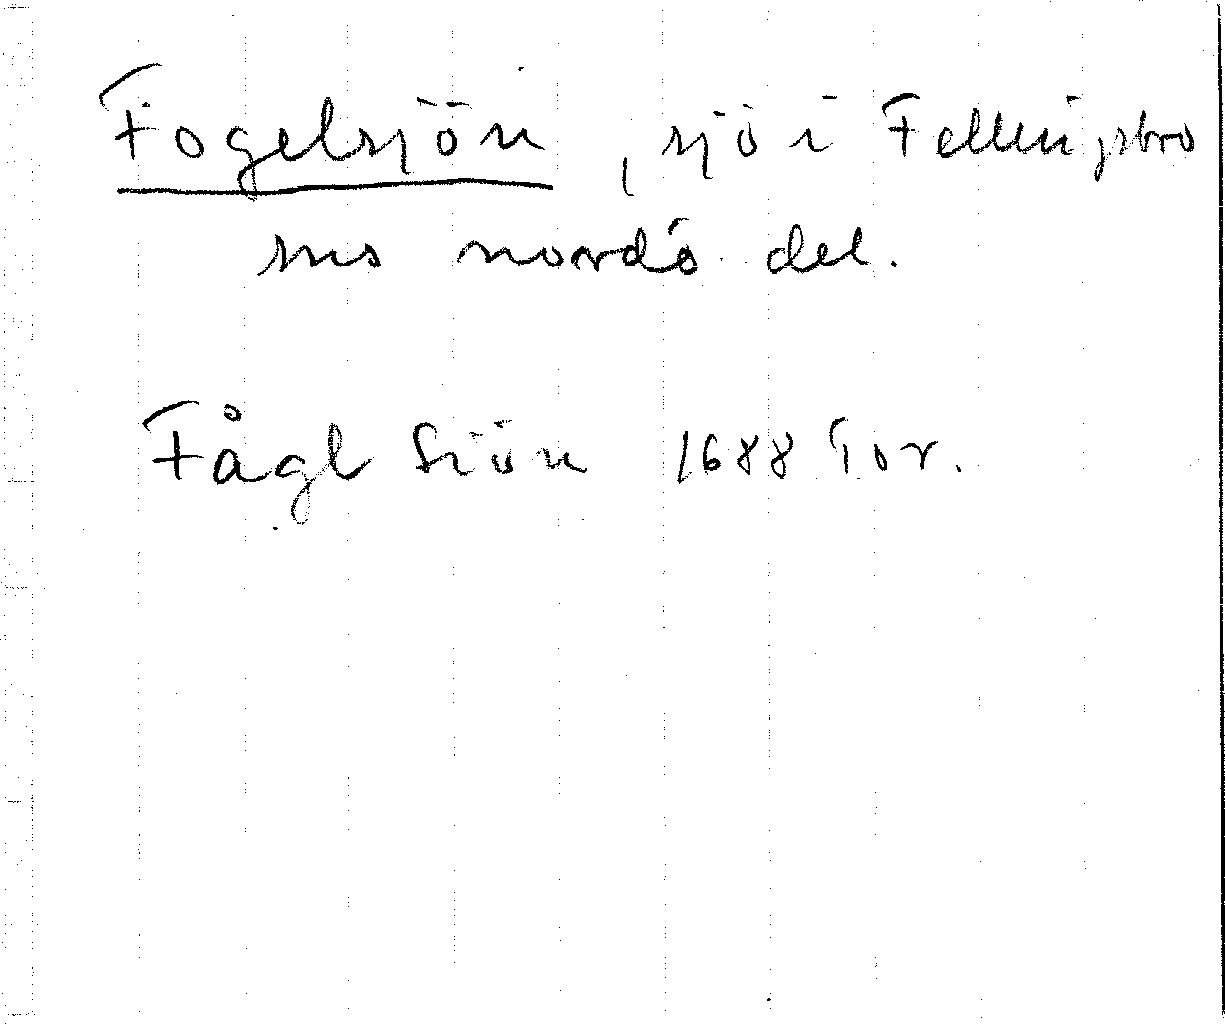 Fogelsjön, sjö i Fellingsbro
sns nordö del.
Fågl Siön 1688 Tor.